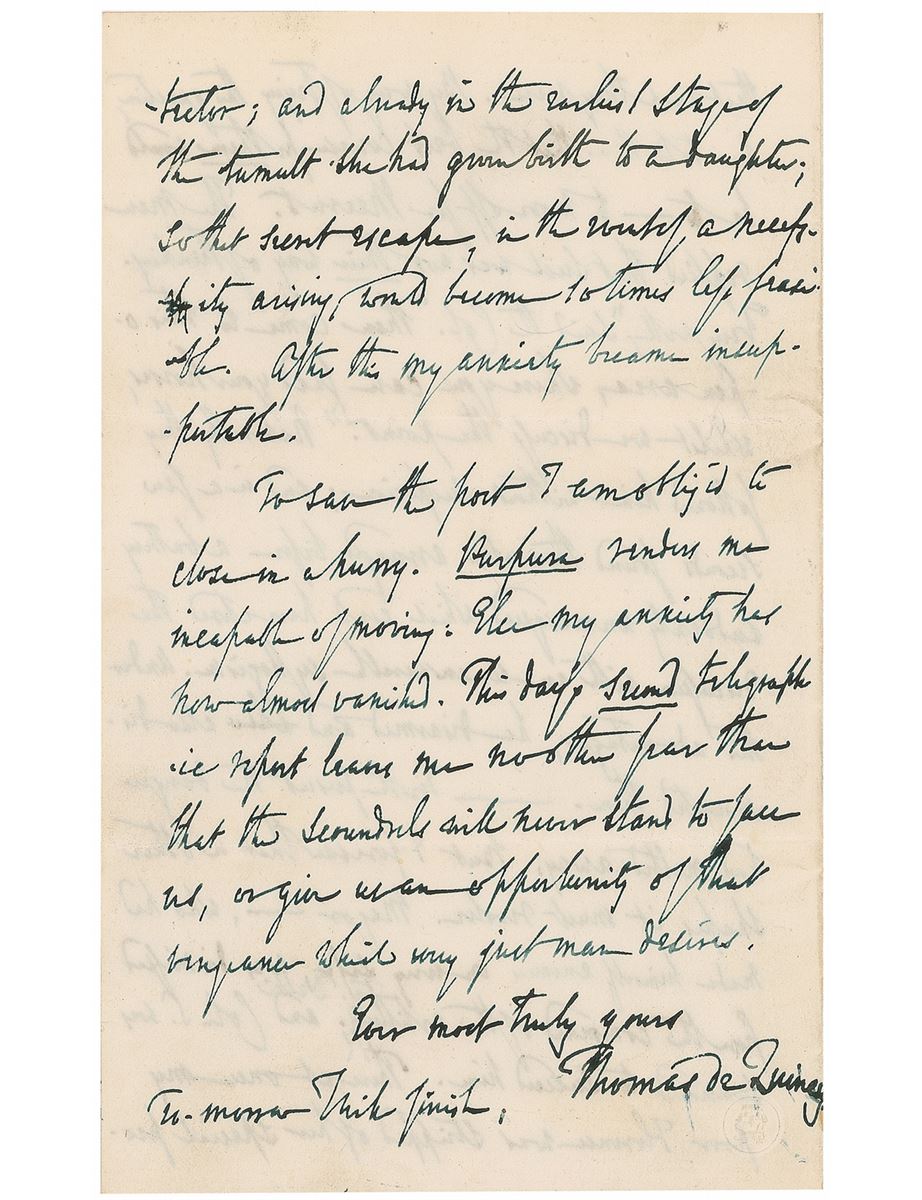 -tector; and already in the earliest stage of
the tumult she had given birth to a daughter;
so that secret escape, in the event of a necess-
ity arising, would become 10 times less feasi-
-ble. After this my anxiety became insup-
-portable.
To save the post I am oblig'd to
close in a hurry. Purpura renders me
incapable of moving: Else my anxiety has
now almost vanished. This day's second telegraph
-ic report leaves me no other fear than
that the scoundrels will never stand to face
us, or give us an opportunity of that
vengeance which every just man desires.
Ever most truly yours
Thomas de Quincey
To-morrow I'll finish.